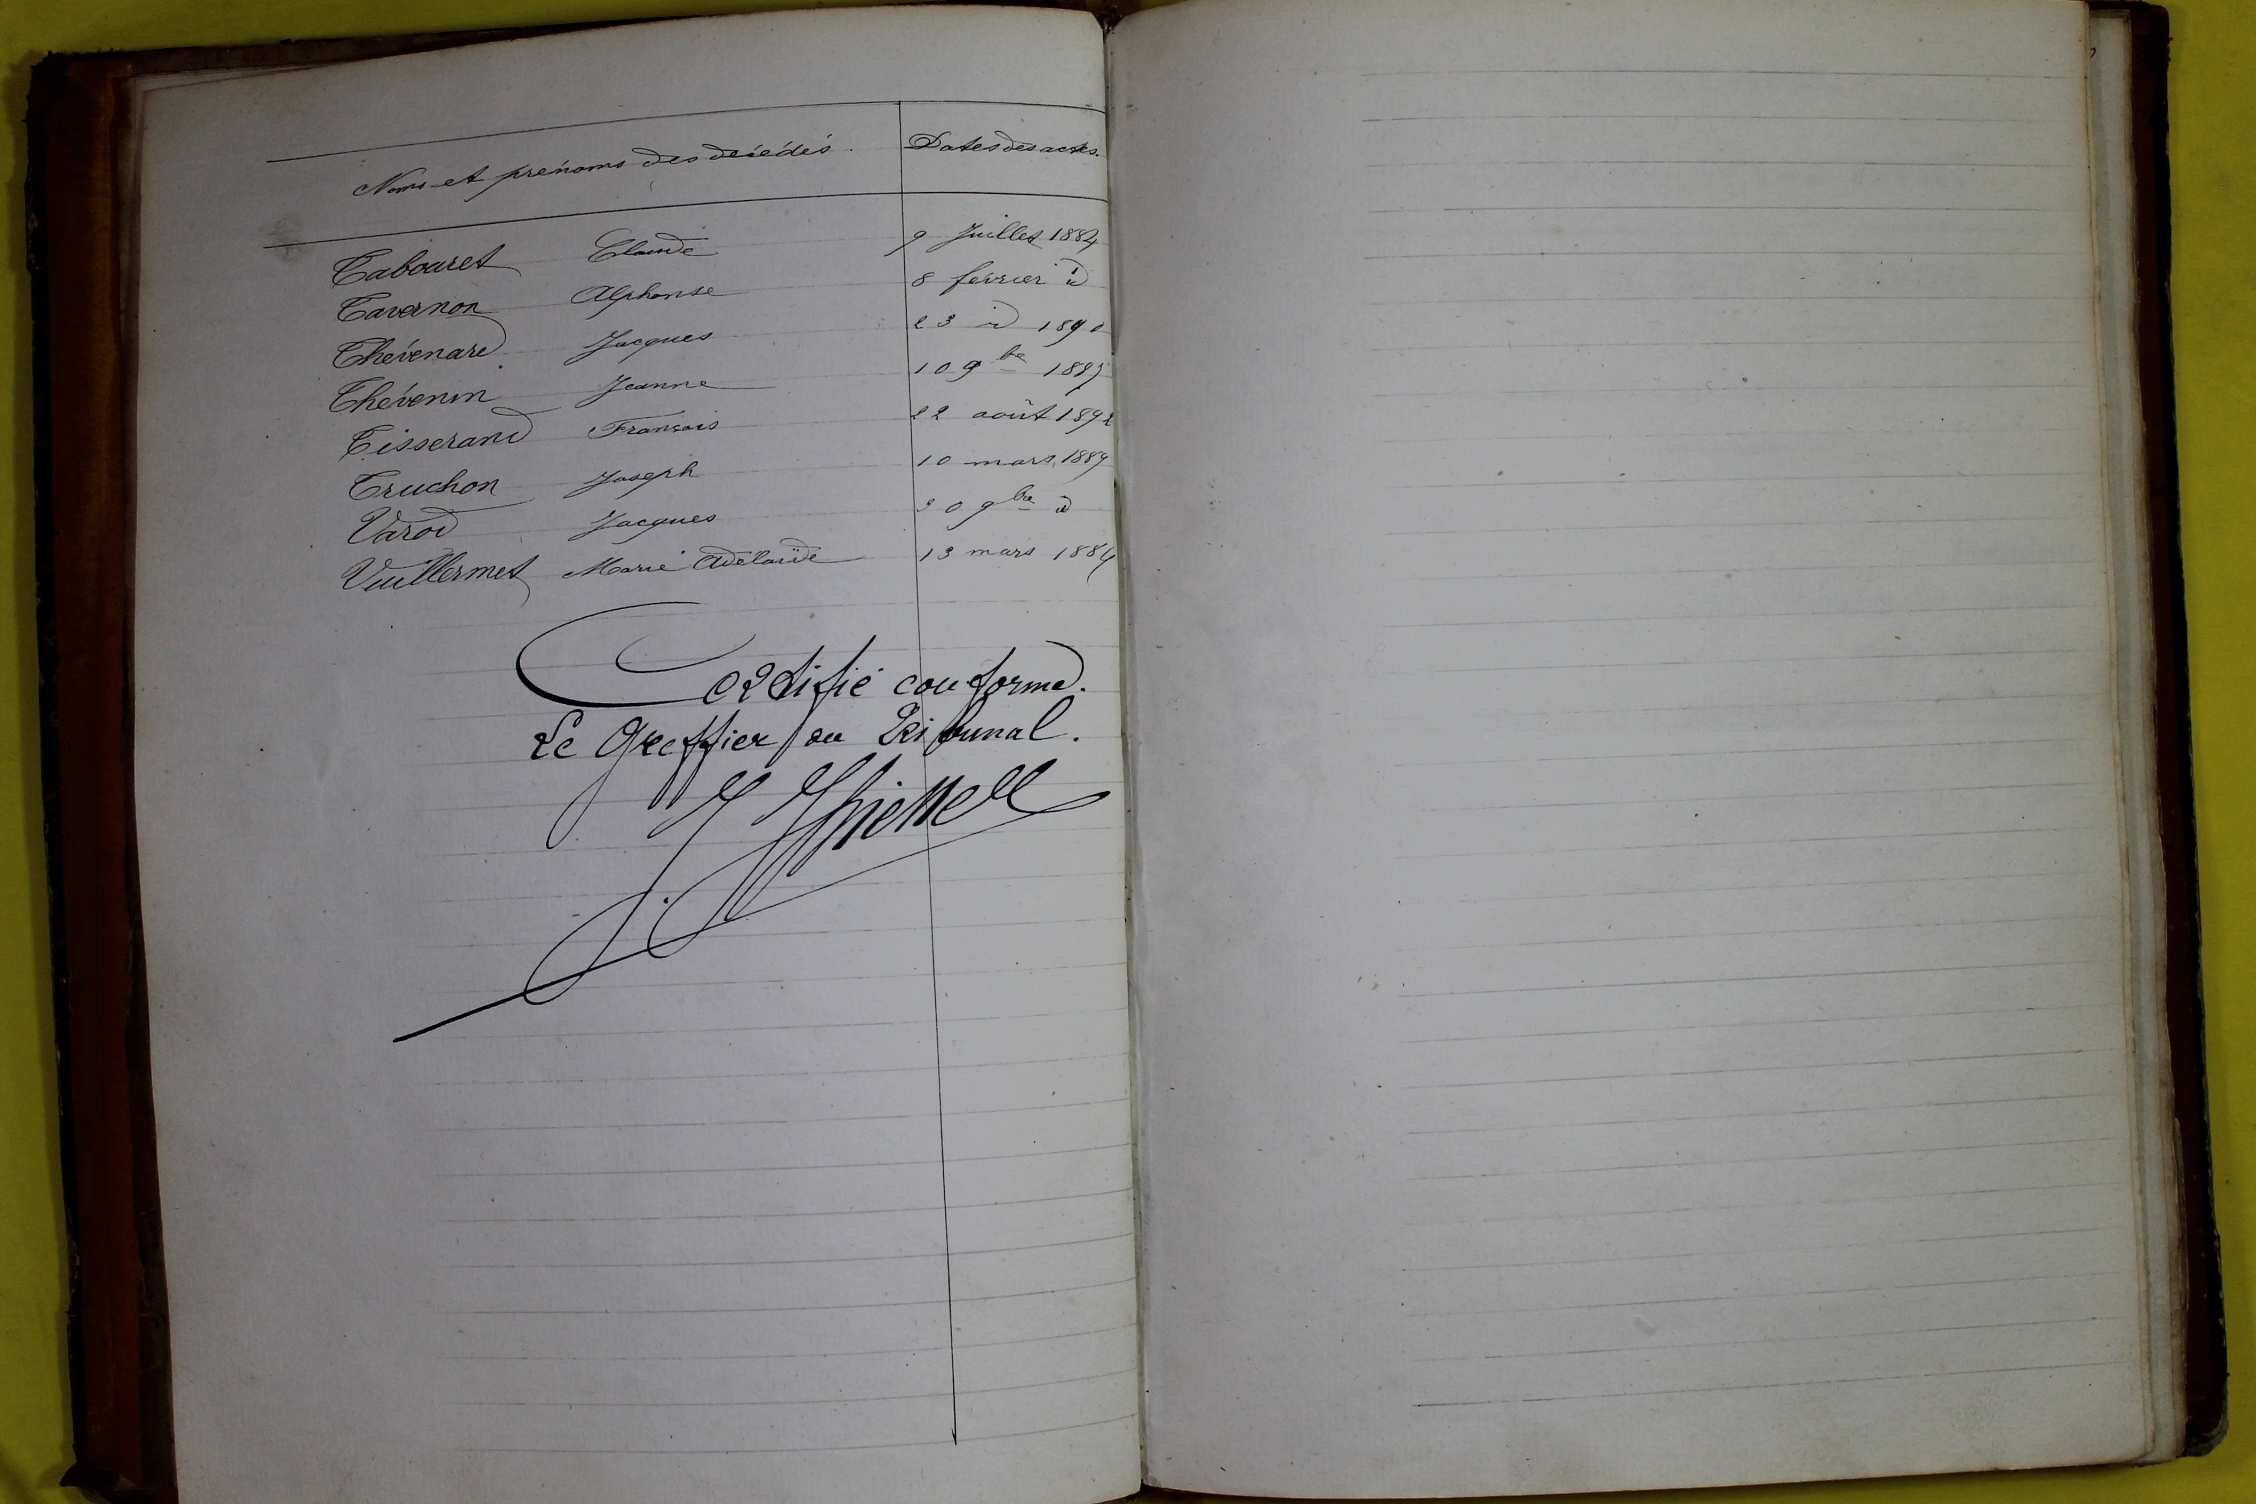 Noms et prénoms des décédés. Dates des actes.
Tabouret Claude 9 Juillet 1884
Tavernon Alphonse 8 février id
Thévenard Jacques 23 id
Thévenin Jeanne 10 9bre
Tisserand François 22 août 1892
Truchon Joseph 10 mars 1889
Varod Jacques 9bre id
Vuillermet Marie Adélaïde 13 mars 1884
Certifié conforme.
Le Greffier du Tribunal.